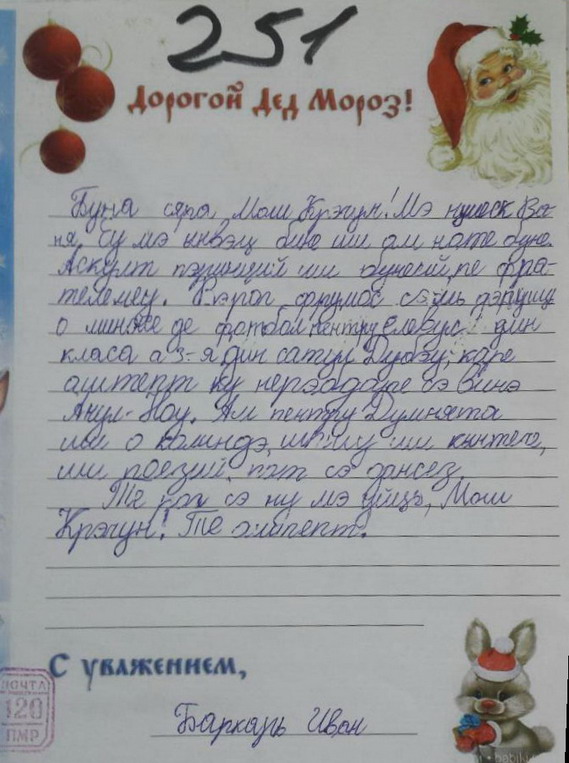 251
Дорогой Дед Мороз!
Буна сяра Мош Крэчун! Мэ нумеск Ва-
ня. Еу мэ ынвэц бине ши ам ноте буне.
Аскулт пэринций ши бунеий, пе фра-
телемеу. Те рог фрумос сэ-мь дэруешь
о минӂе де фотбал пентру елевул дин
класа а 3-я дин сатул Дубэу, каре
аштепт ку нерэбдаре сэ винэ
Анул-Ноу. Ам пентру Думнята
ши о колиндэ, ши ши кынтече,
ши поезий, пот сэ дансез
Те рог сэ ну мэ уйць, Мош
Крэчун! Те аштепт.
С уважением,
Баркарь Иван
ПОЧТА
120
ПМР